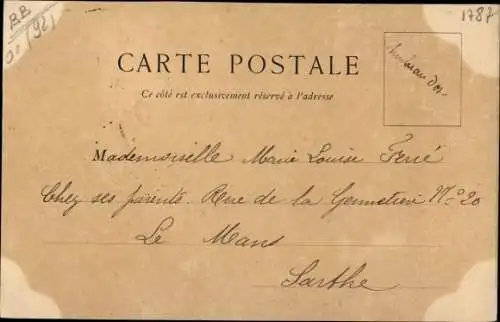 BB
1787
CARTE POSTALE
Ce côté est exclusivement réservé à l'adresse
Mademoiselle Marie Louise Ferré
Chez ses parents Rue de la No 20
Le Mans
Sarthe